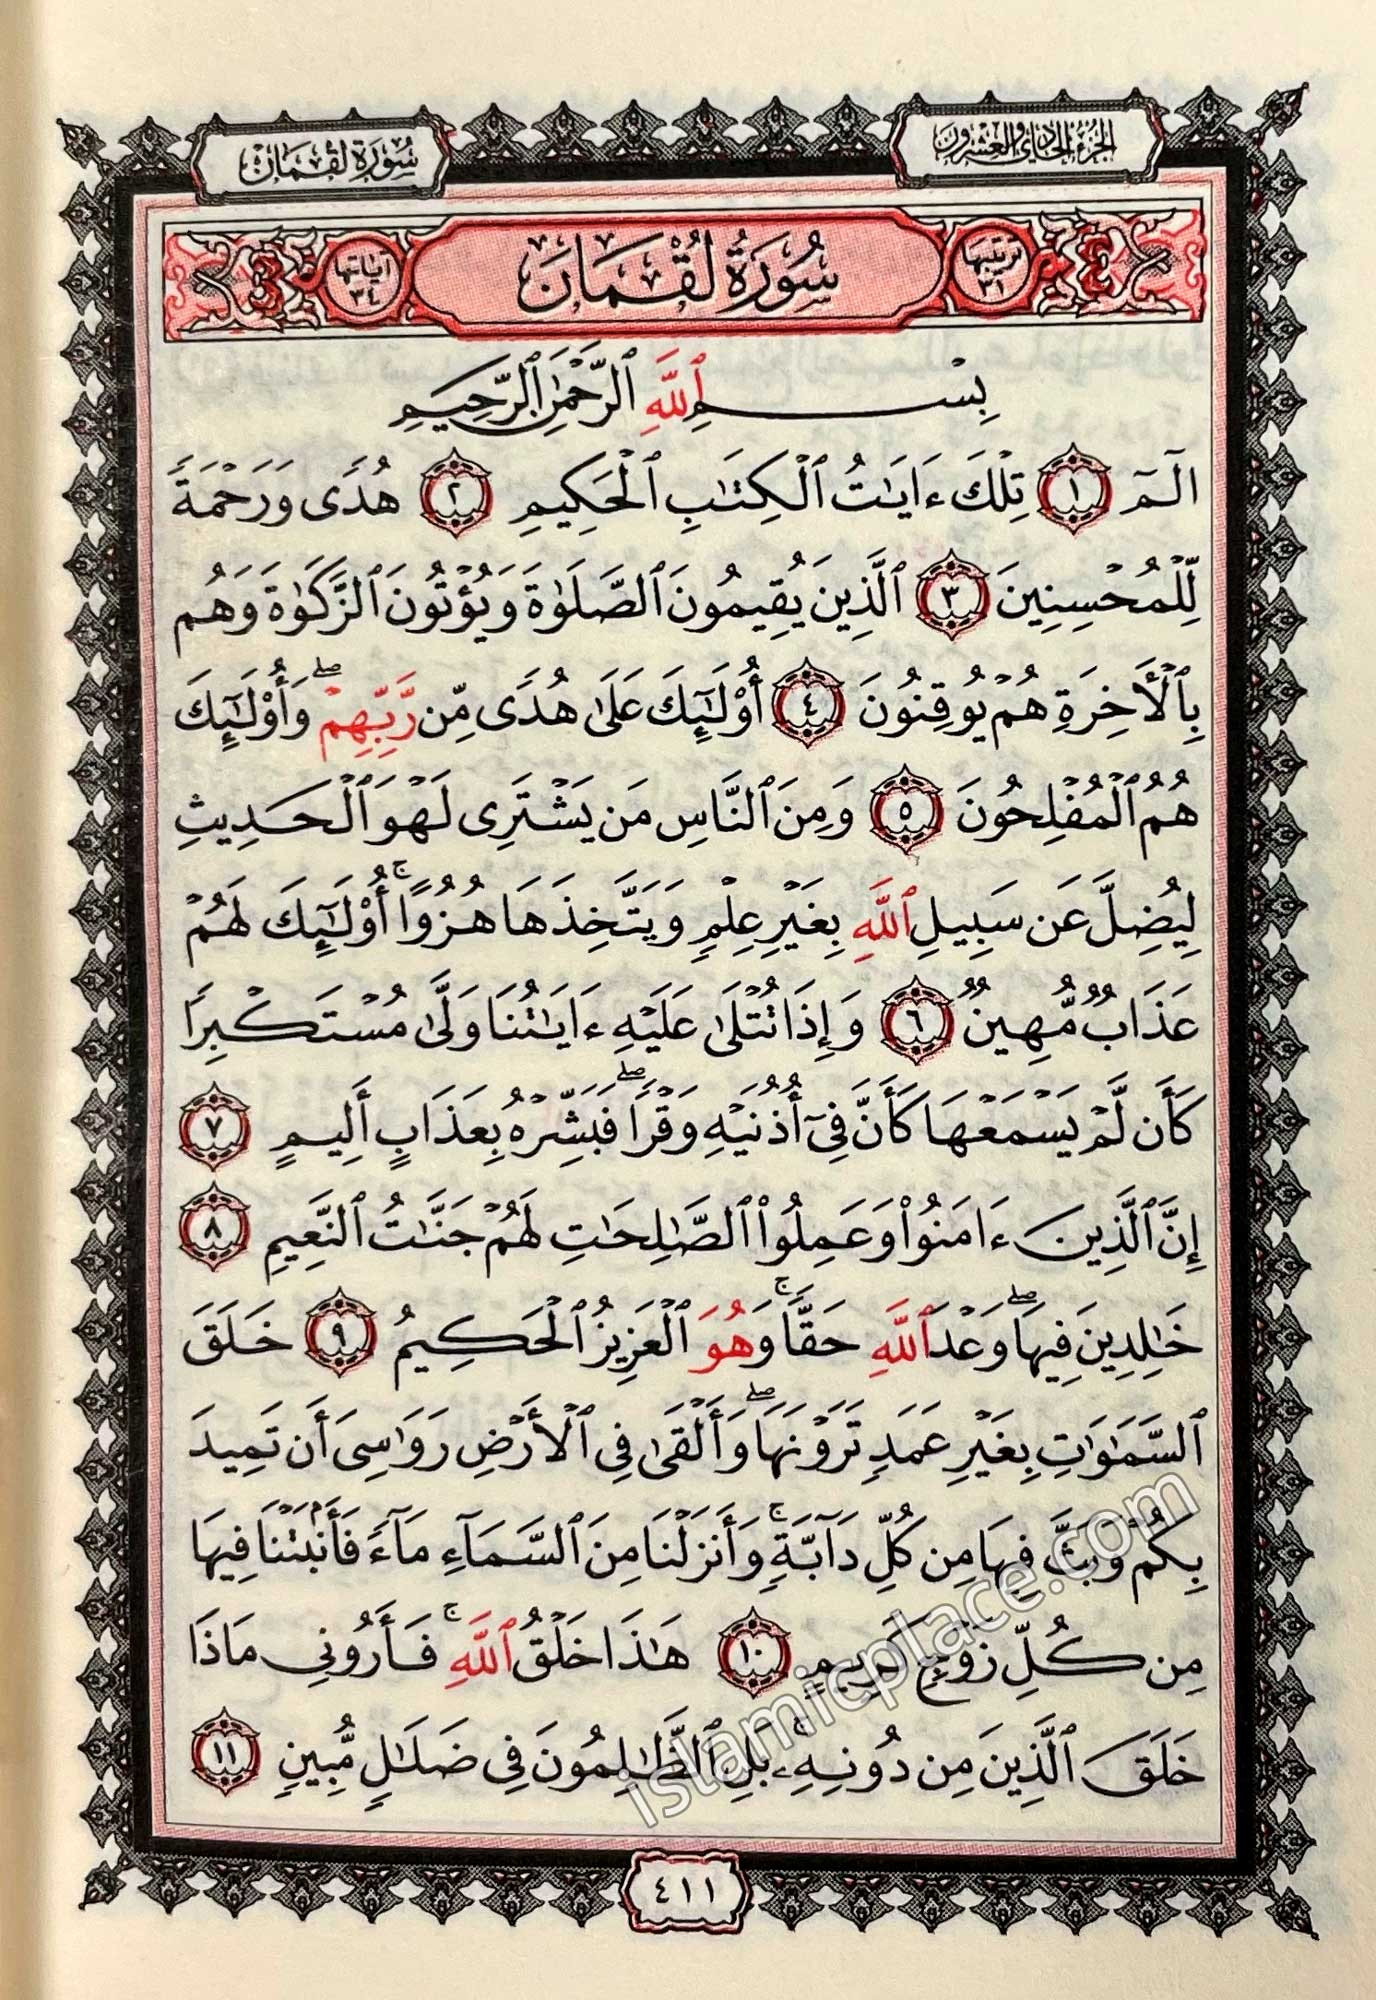 الجزء الحادي والعشرون
سورة لقمان
ترتيبها ٣١
سُورَةُ لُقْمَانَ
آياتها ٣٤
بِسْمِ ٱللَّهِ ٱلرَّحْمَٰنِ ٱلرَّحِيمِ
الٓمٓ ١ تِلْكَ ءَايَٰتُ ٱلْكِتَٰبِ ٱلْحَكِيمِ ٢ هُدًى وَرَحْمَةً
لِّلْمُحْسِنِينَ ٣ ٱلَّذِينَ يُقِيمُونَ ٱلصَّلَوٰةَ وَيُؤْتُونَ ٱلزَّكَوٰةَ وَهُم
بِٱلْأَخِرَةِ هُمْ يُوقِنُونَ ٤ أُوْلَٰٓئِكَ عَلَىٰ هُدًى مِّن رَّبِّهِمْ ۖ وَأُوْلَٰٓئِكَ
هُمُ ٱلْمُفْلِحُونَ ٥ وَمِنَ ٱلنَّاسِ مَن يَشْتَرِى لَهْوَ ٱلْحَدِيثِ
لِيُضِلَّ عَن سَبِيلِ ٱللَّهِ بِغَيْرِ عِلْمٍ وَيَتَّخِذَهَا هُزُوًا ۚ أُوْلَٰٓئِكَ لَهُمْ
عَذَابٌ مُّهِينٌ ٦ وَإِذَا تُتْلَىٰ عَلَيْهِ ءَايَٰتُنَا وَلَّىٰ مُسْتَكْبِرًا
كَأَن لَّمْ يَسْمَعْهَا كَأَنَّ فِىٓ أُذُنَيْهِ وَقْرًا ۖ فَبَشِّرْهُ بِعَذَابٍ أَلِيمٍ ٧
إِنَّ ٱلَّذِينَ ءَامَنُوا۟ وَعَمِلُوا۟ ٱلصَّٰلِحَٰتِ لَهُمْ جَنَّٰتُ ٱلنَّعِيمِ ٨
خَٰلِدِينَ فِيهَا ۖ وَعْدَ ٱللَّهِ حَقًّا ۚ وَهُوَ ٱلْعَزِيزُ ٱلْحَكِيمُ ٩ خَلَقَ
ٱلسَّمَٰوَٰتِ بِغَيْرِ عَمَدٍ تَرَوْنَهَا ۖ وَأَلْقَىٰ فِى ٱلْأَرْضِ رَوَٰسِىَ أَن تَمِيدَ
بِكُمْ وَبَثَّ فِيهَا مِن كُلِّ دَآبَّةٍ ۚ وَأَنزَلْنَا مِنَ ٱلسَّمَآءِ مَآءً فَأَنۢبَتْنَا فِيهَا
مِن كُلِّ زَوْجٍ كَرِيمٍ ١٠ هَٰذَا خَلْقُ ٱللَّهِ ۚ فَأَرُونِى مَاذَا
خَلَقَ ٱلَّذِينَ مِن دُونِهِۦ ۚ بَلِ ٱلظَّٰلِمُونَ فِى ضَلَٰلٍ مُّبِينٍ ١١
islamicplace.com
٤١١